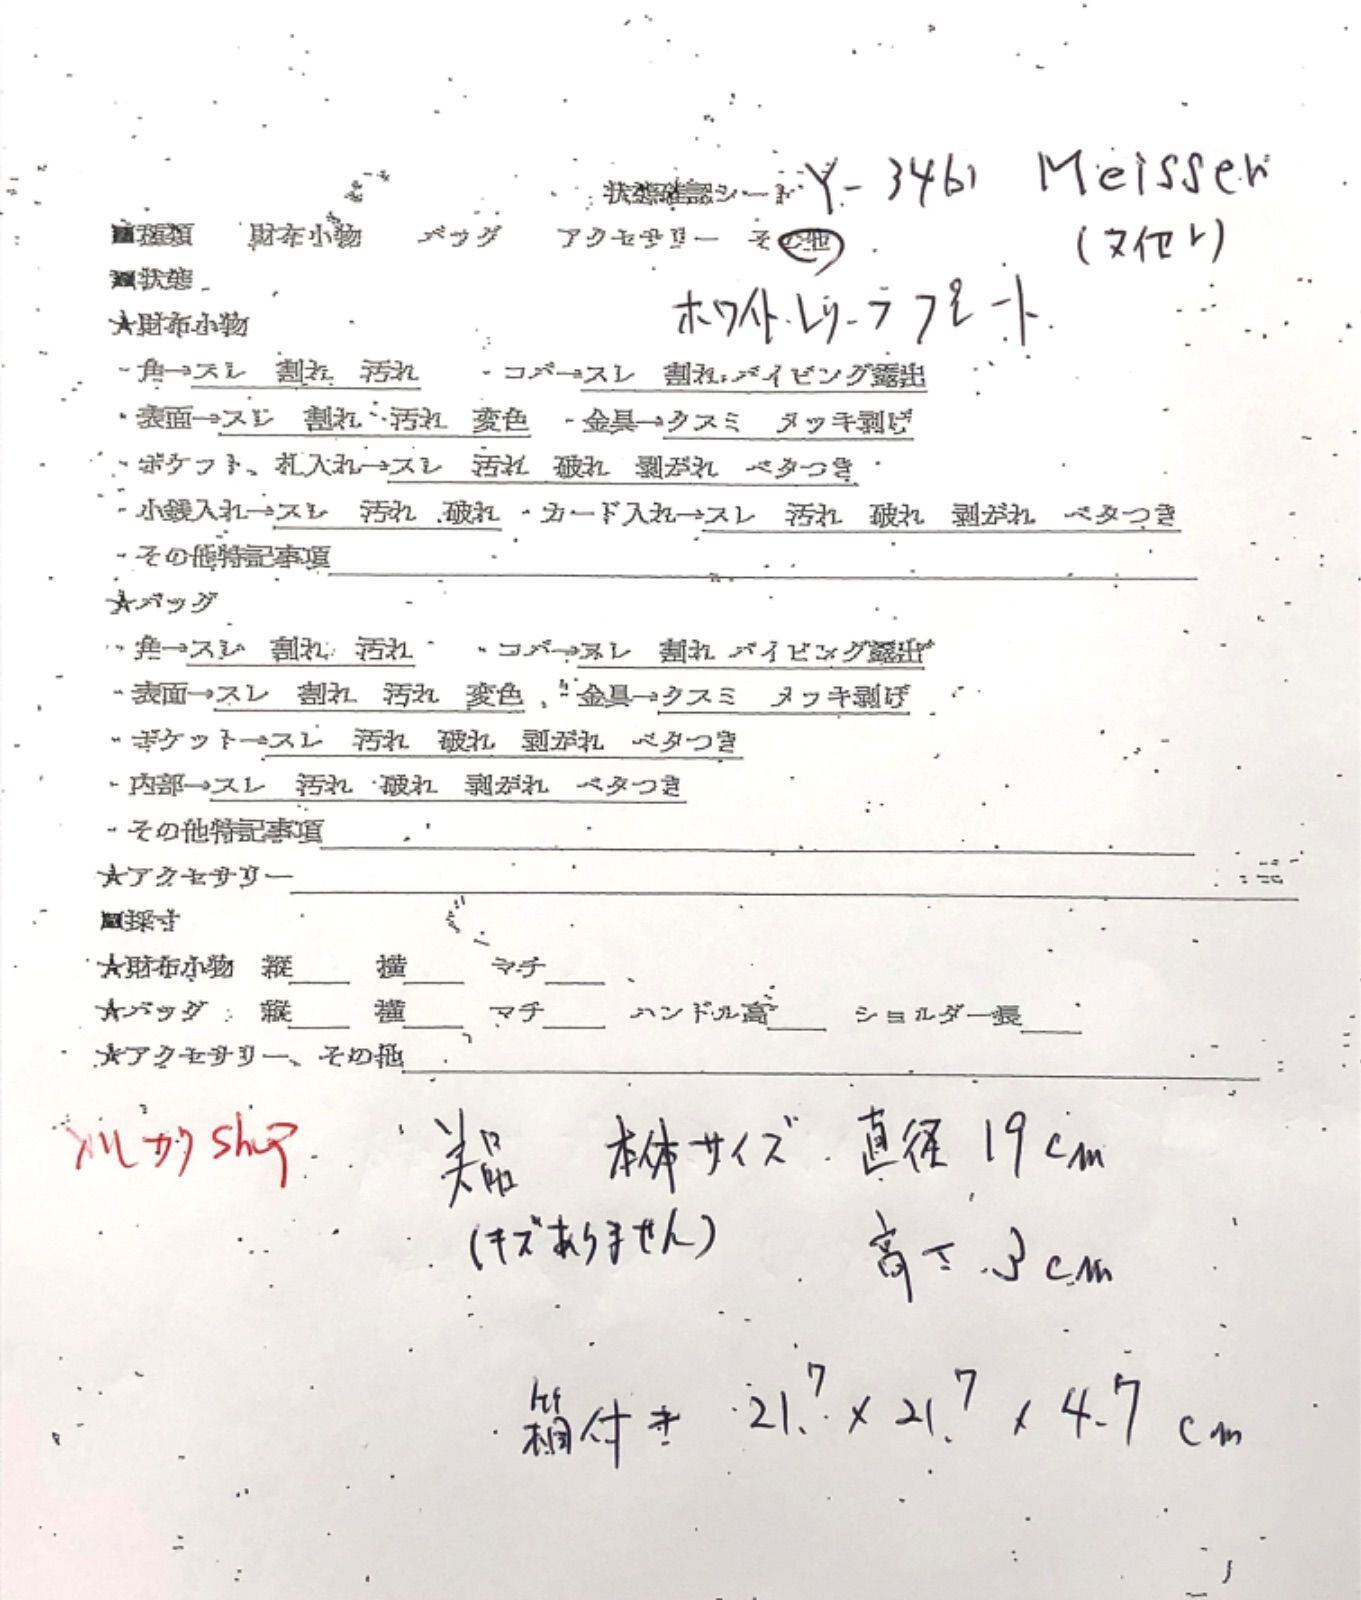 状態確認シート Y-3461 Meissen
■種類 財布小物 バッグ アクセサリー その他
(マイセン)
■状態
ホワイトレリーフプレート
★財布小物
・角→スレ 割れ 汚れ ・コバ→スレ 割れ パイピング露出
・表面→スレ 割れ 汚れ 変色 ・金具→クスミ メッキ剥げ
・ポケット、札入れ→スレ 汚れ 破れ 剥がれ ベタつき
・小銭入れ→スレ 汚れ 破れ ・カード入れ→スレ 汚れ 破れ 剥がれ ベタつき
・その他特記事項
★バッグ
・角→スレ 割れ 汚れ ・コバ→スレ 割れ パイピング露出
・表面→スレ 割れ 汚れ 変色 ・金具→クスミ メッキ剥げ
・ポケット→スレ 汚れ 破れ 剥がれ ベタつき
・内部→スレ 汚れ 破れ 剥がれ ベタつき
・その他特記事項
★アクセサリー
■採寸
★財布小物 縦 横 マチ
★バッグ 縦 横 マチ ハンドル高 ショルダー長
★アクセサリー、その他
メルカリshop 美品 本体サイズ 直径 19cm
(キズありません) 高さ 3cm
箱付き 21.7×21.7×4.7cm